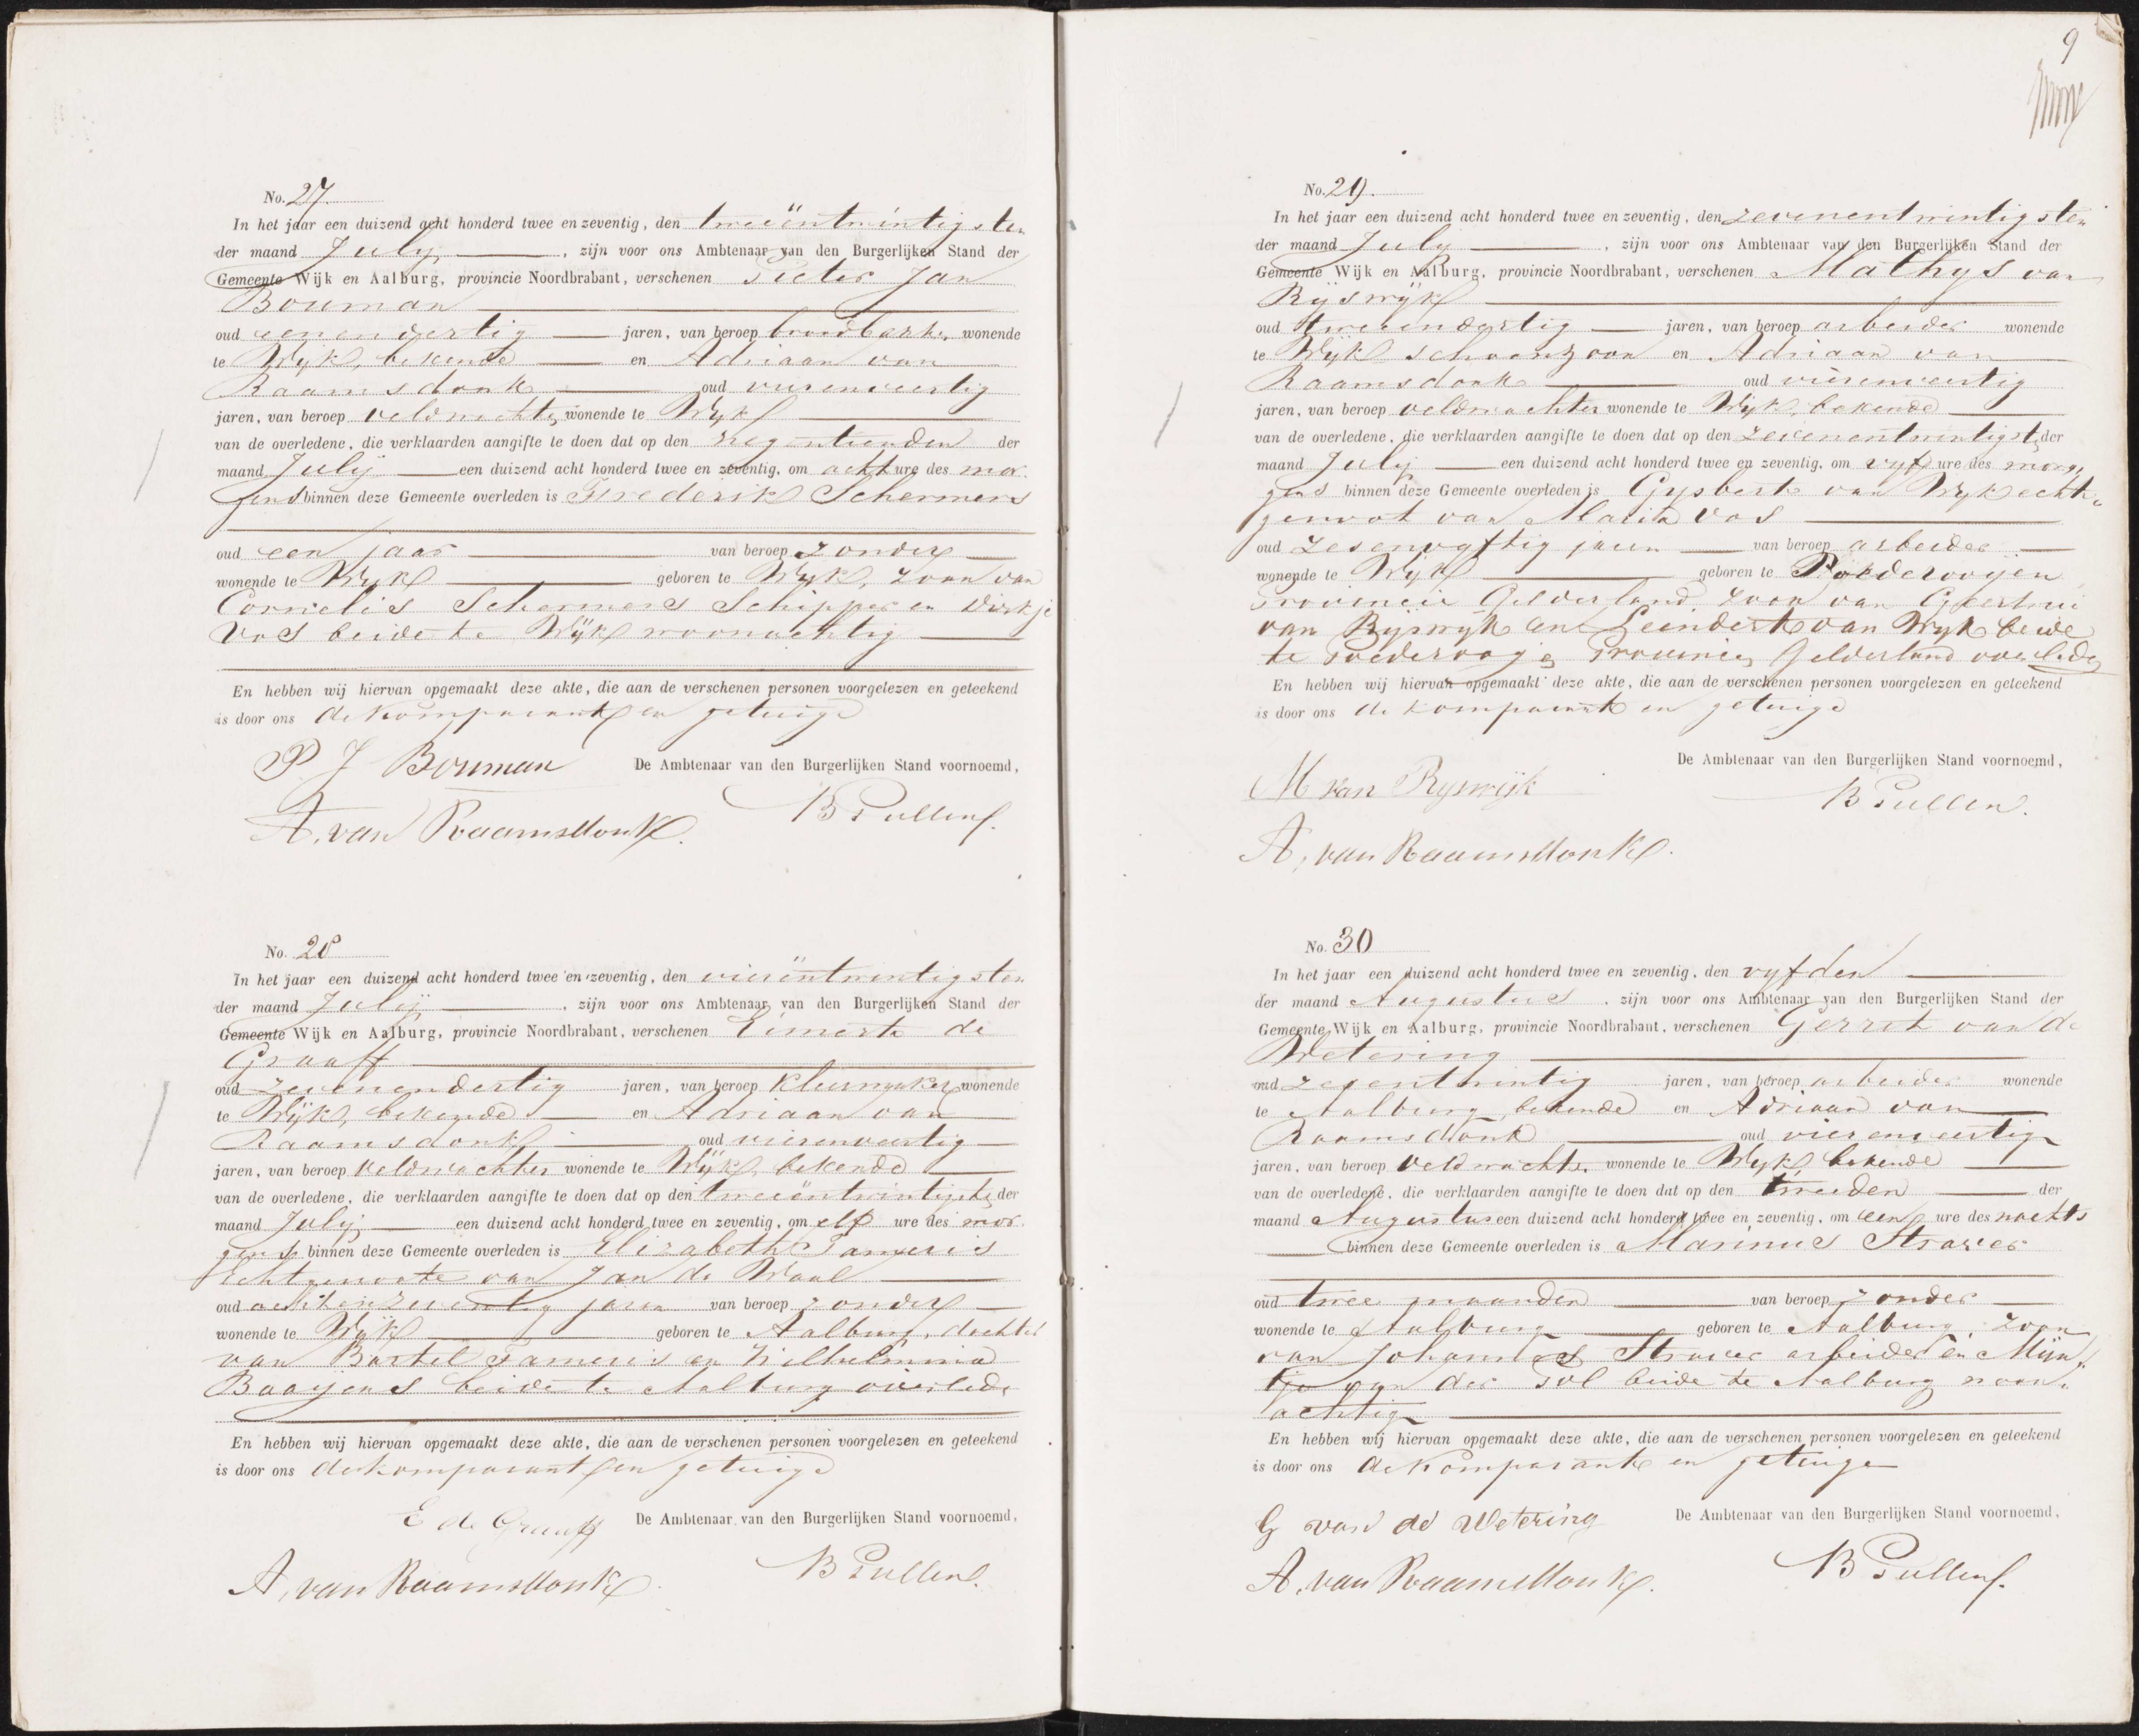 No. 27.
In het jaar een duizend acht honderd twee en zeventig, den tweeëntwintigsten
der maand July, zijn voor ons Ambtenaar van den Burgerlijken Stand der
Gemeente Wijk en Aalburg, provincie Noordbrabant, verschenen Pieter Jan
Bouman
oud eenendertig jaren, van beroep wonende
te Wijk, bekende en Adriaan van
Raamsdonk oud vierenveertig
jaren, van beroep veldwachter wonende te Wijk
van de overledene, die verklaarden aangifte te doen dat op den negentienden der
maand July een duizend acht honderd twee en zeventig, om acht ure des mor-
gens binnen deze Gemeente overleden is Frederik Schermers
oud een jaar van beroep zonder
wonende te Wijk geboren te Wijk, zoon van
Cornelis Schermers Schipper en Dirkje
Vos beide te Wijk woonachtig
En hebben wij hiervan opgemaakt deze akte, die aan de verschenen personen voorgelezen en geteekend
is door ons de komparant en getuige
P J Bouman De Ambtenaar van den Burgerlijken Stand voornoemd,
A. van Raamsdonk. B Pullens.
No. 28
In het jaar een duizend acht honderd twee en zeventig, den vierëntwintigsten
der maand July, zijn voor ons Ambtenaar van den Burgerlijken Stand der
Gemeente Wijk en Aalburg, provincie Noordbrabant, verschenen Eimert de
Graaff
oud zevenendertig jaren, van beroep kleermaker wonende
te Wijk, bekende en Adriaan van
Raamsdonk oud vierenveertig
jaren, van beroep veldwachter wonende te Wijk, bekende
van de overledene, die verklaarden aangifte te doen dat op den tweeëntwintigste der
maand July een duizend acht honderd twee en zeventig, om elf ure des mor-
gens binnen deze Gemeente overleden is Elizabeth Tameris
Echtgenoote van Jan de Waal
oud achtenzeventig jaren van beroep zonder
wonende te Wijk geboren te Aalburg, dochter
van Bastel Tameris en Wilhelmina
Baayens beide te Aalburg overlede
En hebben wij hiervan opgemaakt deze akte, die aan de verschenen personen voorgelezen en geteekend
is door ons de komparant en getuige
E de Graaff De Ambtenaar van den Burgerlijken Stand voornoemd,
A. van Raamsdonk. B Pullens.
9
No. 29.
In het jaar een duizend acht honderd twee en zeventig, den zevenentwintigsten
der maand July, zijn voor ons Ambtenaar van den Burgerlijken Stand der
Gemeente Wijk en Aalburg, provincie Noordbrabant, verschenen Mathys van
Rijswijk
oud tweeendertig jaren, van beroep arbeider wonende
te Wijk schoonzoon en Adriaan van
Raamsdonk oud vierenveertig
jaren, van beroep veldwachter wonende te Wijk, bekende
van de overledene, die verklaarden aangifte te doen dat op den zevenentwintigste der
maand July een duizend acht honderd twee en zeventig, om vyf ure des morg,
gens binnen deze Gemeente overleden is Gysbert van Wyk echt-
genoot van Maria Vos
oud zesenvyftig jaren van beroep arbeider
wonende te Wijk geboren te Poederooyen
Provincie Gelderland, zoon van Geertrui
van Rijswijk en Leendert van Wyk beide
te Poederooye, Provincie Gelderland overleden
En hebben wij hiervan opgemaakt deze akte, die aan de verschenen personen voorgelezen en geteekend
is door ons de komparant en getuige
De Ambtenaar van den Burgerlijken Stand voornoemd,
M van Ryswijk B Pullens.
A. van Raamsdonk.
No. 30
In het jaar een duizend acht honderd twee en zeventig, den vyfden
der maand Augustus, zijn voor ons Ambtenaar van den Burgerlijken Stand der
Gemeente Wijk en Aalburg, provincie Noordbrabant, verschenen Gerrit van de
Wetering
oud zesentwintig jaren, van beroep arbeider wonende
te Aalburg, bekende en Adriaan van
Raamsdonk oud vierenveertig
jaren, van beroep veldwachter wonende te Wyk, bekende
van de overledene, die verklaarden aangifte te doen dat op den tweeden der
maand Augustus een duizend acht honderd twee en zeventig, om een ure des nachts
binnen deze Gemeente overleden is Marinus Straver
oud twee maanden van beroep zonder
wonende te Aalburg geboren te Aalburg, zoon
van Johannes Straver arbeider en Mijn-
tje van der Pol beide te Aalburg woon-
achtig
En hebben wij hiervan opgemaakt deze akte, die aan de verschenen personen voorgelezen en geteekend
is door ons de komparant en getuige
G van de Wetering De Ambtenaar van den Burgerlijken Stand voornoemd,
A. van Raamsdonk. B Pullens.